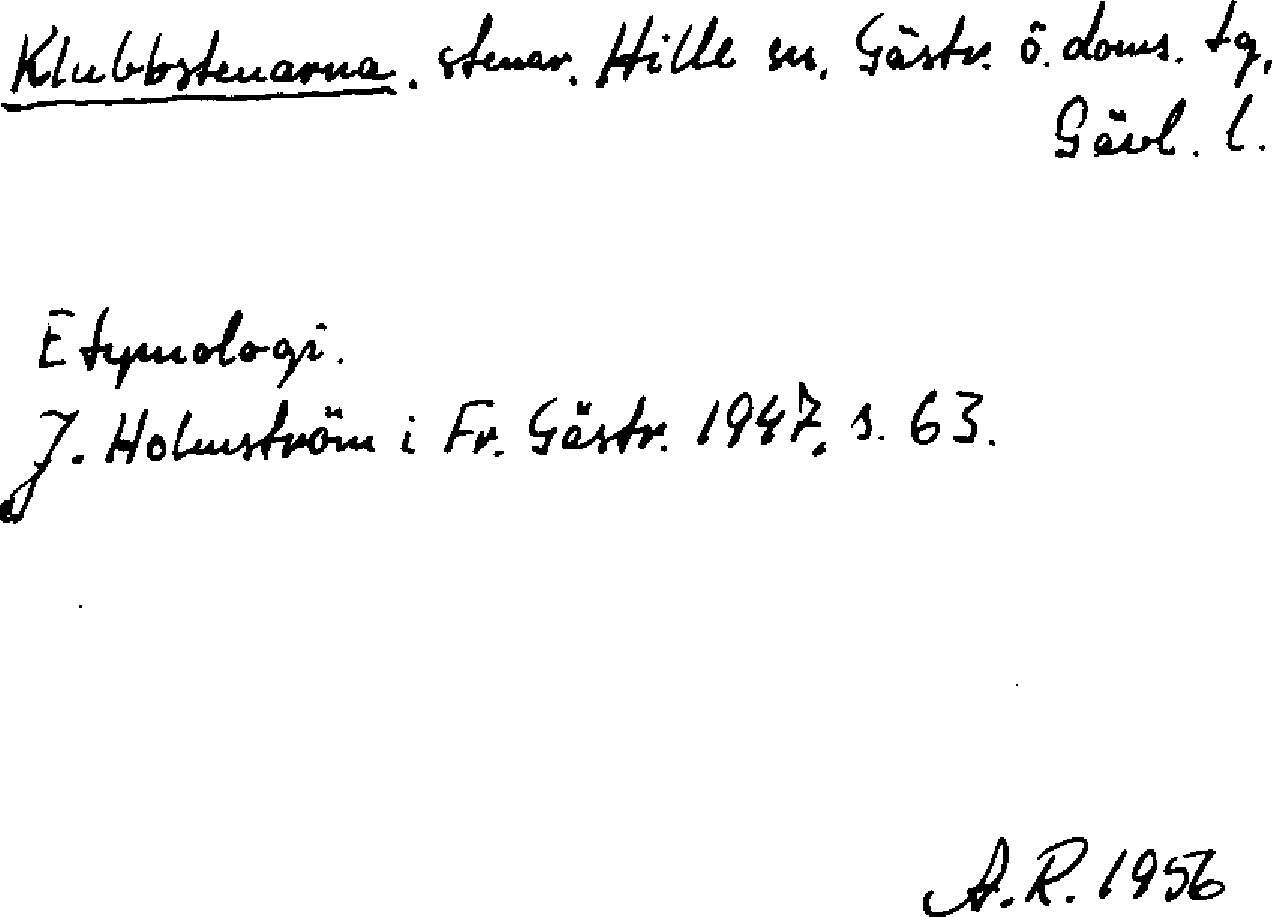 Klubbstenarna. stenar. Hille sn. Gästr. ö. doms. tg,
Gävl. l.
Etymologi.
J. Holmström i Fr. Gästr. 1947, s. 63.
A.R. 1956